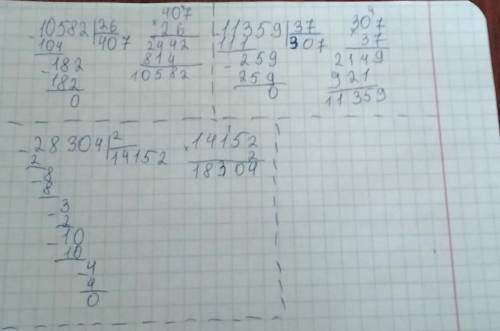 10582 | 26
104 407
- 182
182
0
407
× 26
2442
814
10582
- 11359 | 37
111 307
- 259
259
0
4
307
× 37
2149
921
11359
- 28304 | 2
2 14152
- 8
8
- 3
2
- 10
10
- 4
4
0
1
× 14152
2
18304